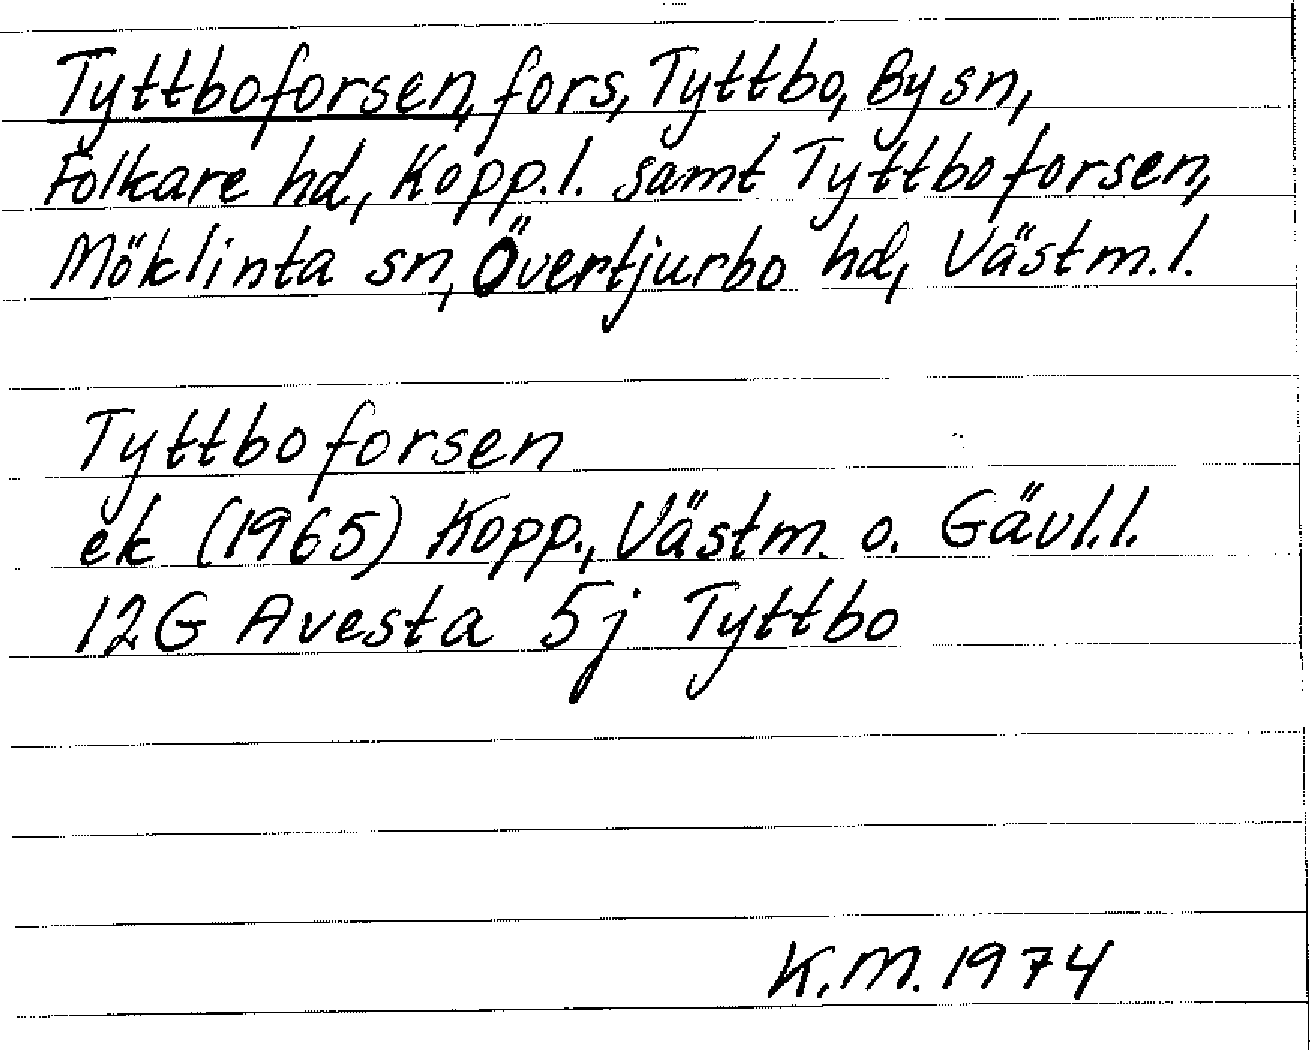 Tyttboforsen, fors, Tyttbo, By sn,
Folkare hd, Kopp.l. samt Tyttboforsen,
Möklinta sn, Övertjurbo hd, Västm.l.
Tyttboforsen
ek (1965) Kopp., Västm. o. Gävl.l.
12G Avesta 5j Tyttbo
K.M. 1974